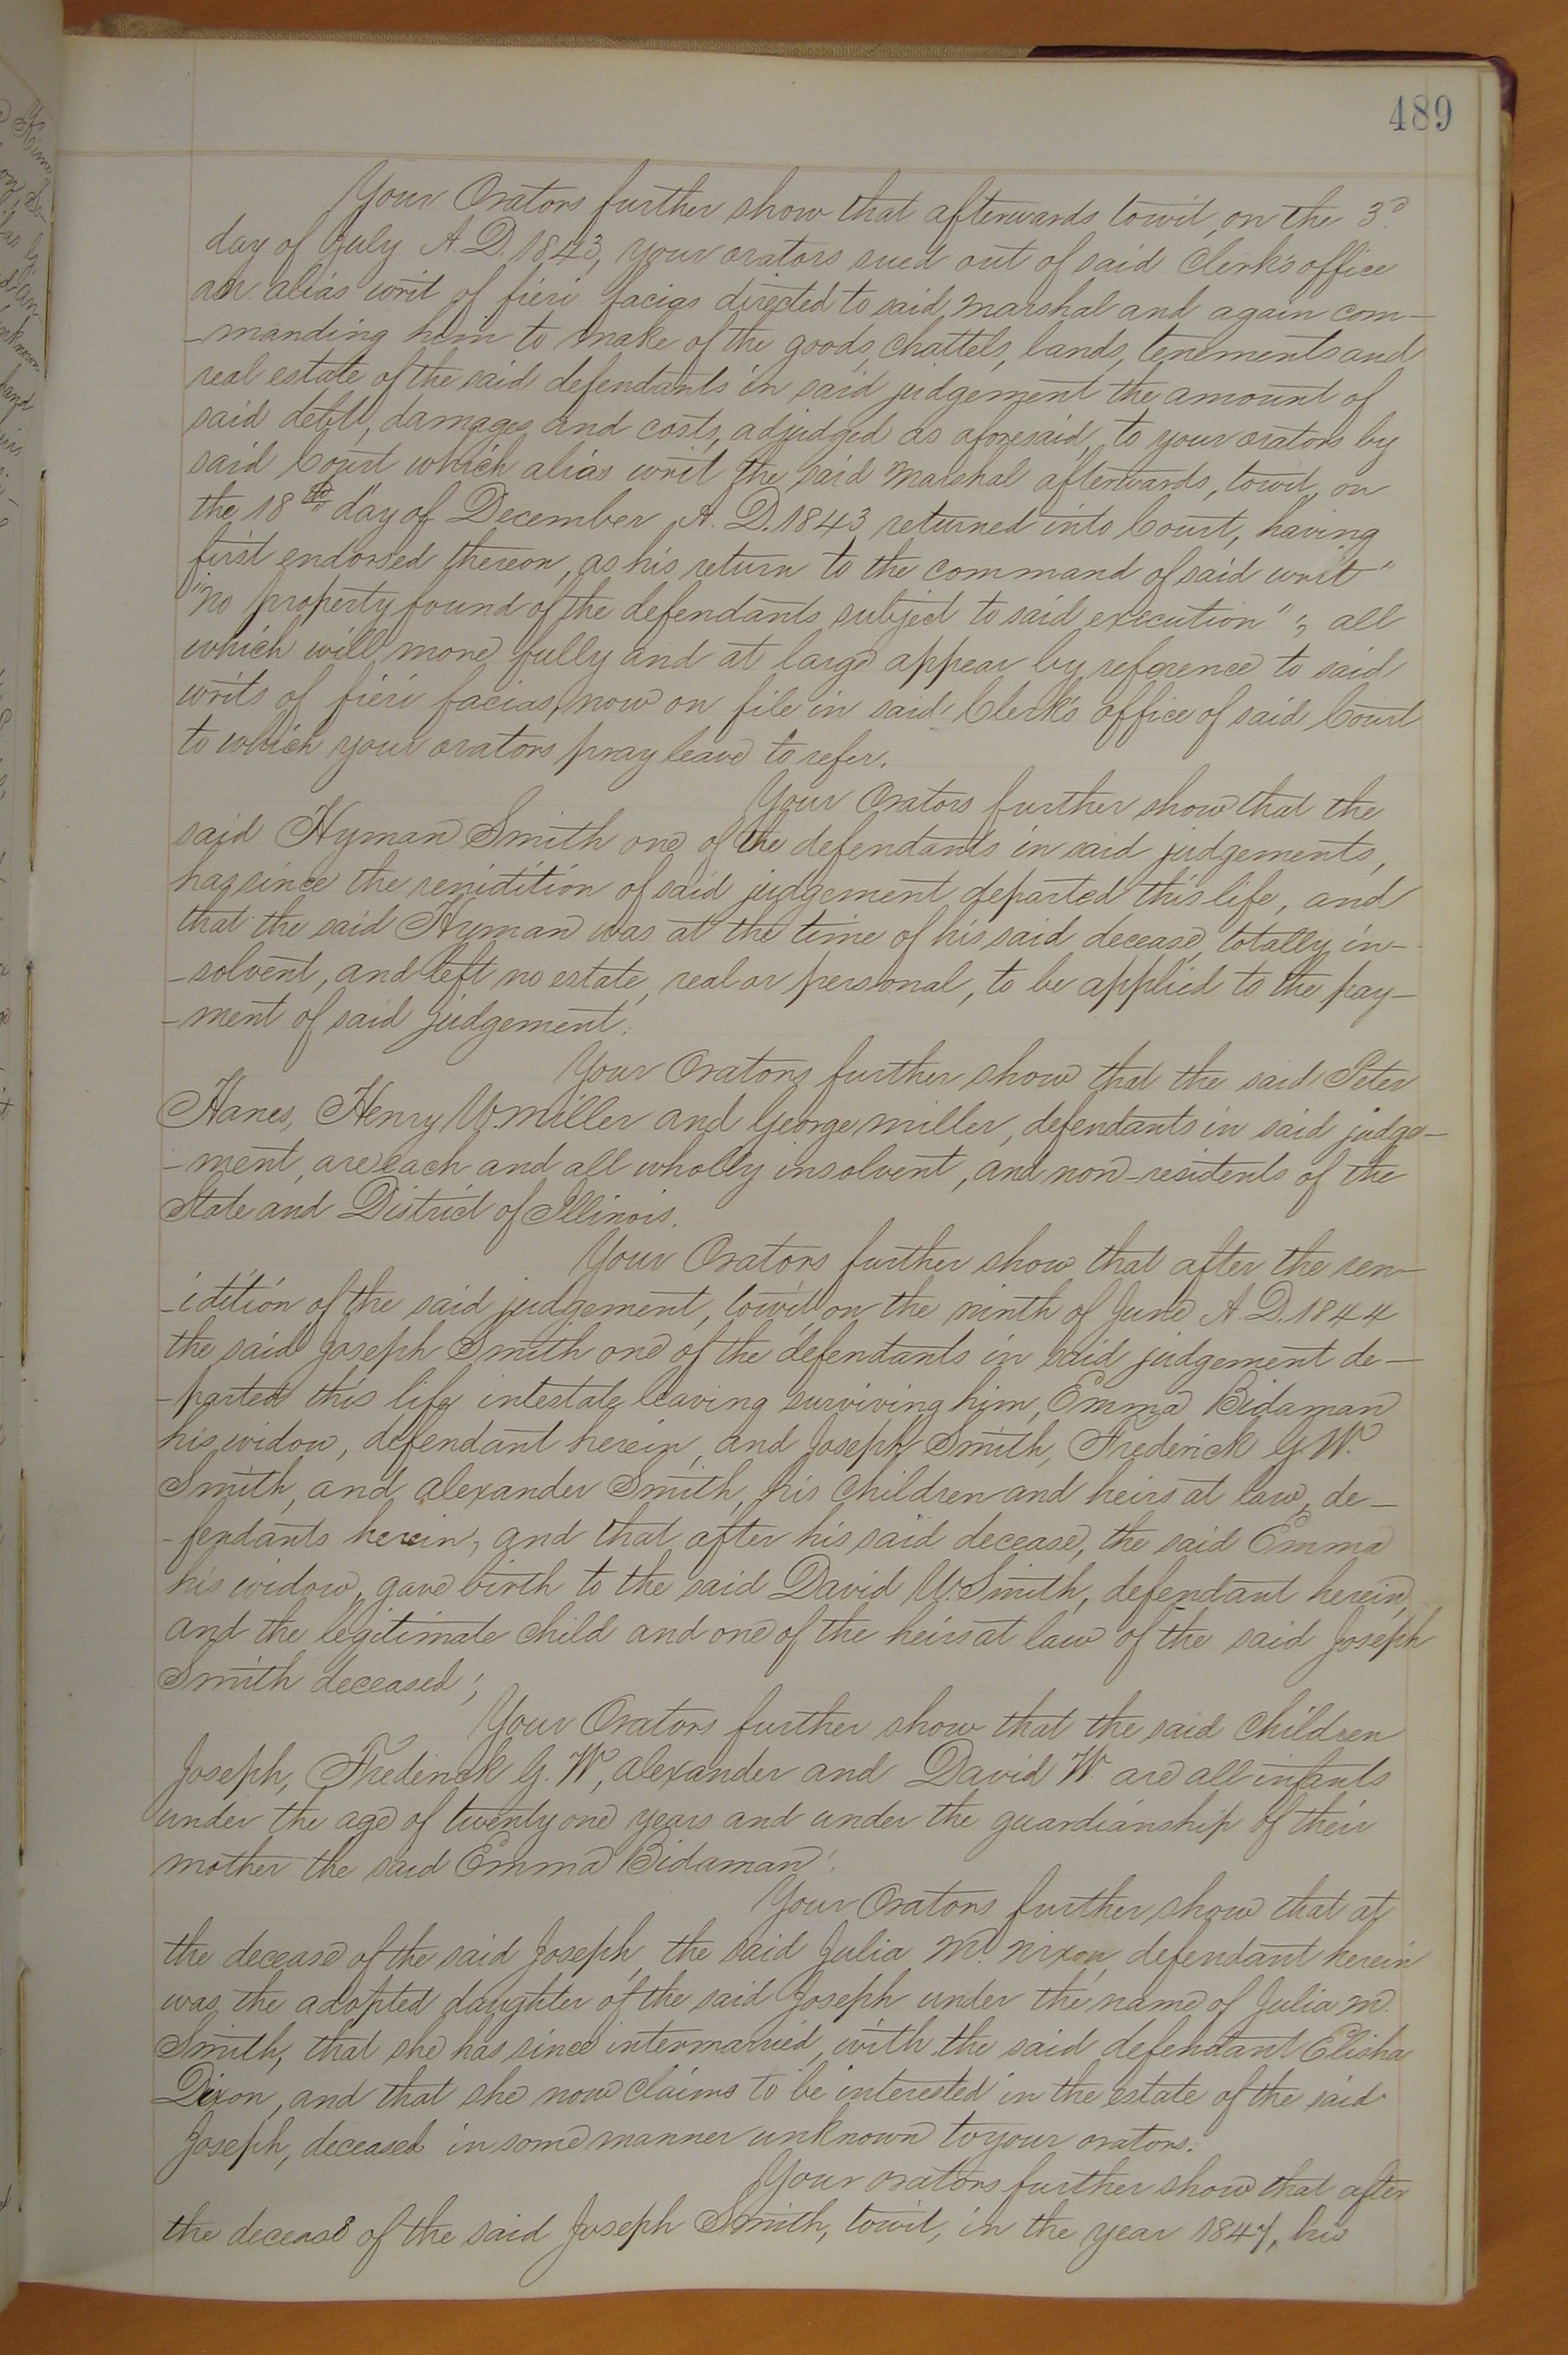 489
Your Orators further show that afterwards towit, on the 3d.
day of July A.D. 1843, your orators sued out of said Clerk's office
an alias writ of fieri facias directed to said Marshal and again com-
-manding him to make of the goods, chattels, lands, tenements and
real estate of the said defendants in said judgement the amount of
said debt, damages, and costs, adjudged as aforesaid, to your orators by
said Court which alias writ the said Marshal afterwards, towit, on
the 18th day of December A.D. 1843 returned into Court, having
first endorsed thereon, as his return to the command of said writ"
"No property found of the defendants subject to said execution"; all
which will more fully and at large appear by reference to said
writs of fieri facias, now on file in said Clerk's office of said Court
to which your orators pray leave to refer.
Your Orators further show that the
said Hyman Smith one of the defendants in said judgements,
has, since the renidition of said judgement departed this life, and
that the said Hyman was at the time of his said decease, totally in-
-solvent, and left no estate, real or personal, to be applied to the pay-
-ment of said judgement.
Your Orators further show that the said Peter
Hanes, Henry W. Miller and George Miller, defendants in said judge-
-ment, are each and all wholly insolvent, and non-residents of the
State and District of Illinois.
Your Orators further show that after the ren-
-idition of the said judgement, towit, on the ninth of June A.D. 1844
the said Joseph Smith one of the defendants in said judgement de-
-parted this life intestate leaving surviving him, Emma Bidaman
his widow, defendant herein, and Joseph Smith, Frederick G. W.
Smith, and Alexander Smith, his children and heirs at law, de-
-fendants herein, and that after his said decease, the said Emma
his widow, gave birth to the said David W. Smith, defendant herein,
and the legitimate child and one of the heirs at law of the said Joseph
Smith deceased;
Your Orators further show that the said children
Joseph, Frederick G. W, Alexander and David W. are all infants
under the age of twenty one years and under the guardianship of their
mother the said Emma Bidaman.
Your Orators further show that at
the decease of the said Joseph, the said Julia M. Nixon, defendant herein
was the adopted daughter of the said Joseph under the name of Julia M.
Smith, that she has since intermarried, with the said defendant Elisha
Dixon, and that she now claims to be interested in the estate of the said
Joseph, deceased in some manner unknown to your orators.
Your orators further show that after
the decease of the said Joseph Smith, towit, in the year 1847, his